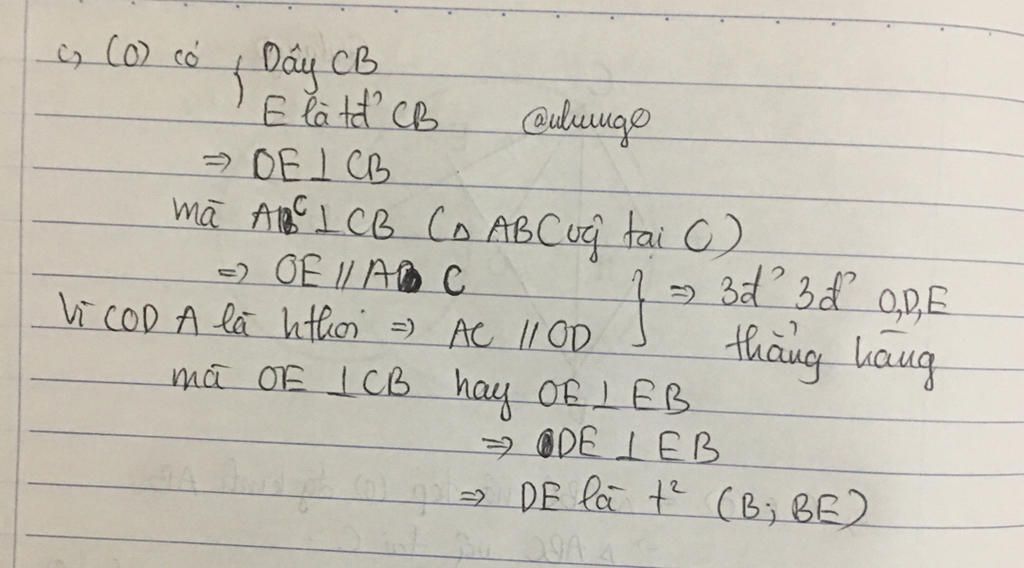 c, (O) có { Dây CB
E là tđ' CB @nhungo
⇒ OE ⊥ CB
mà AC ⊥ CB (△ ABC vg̃ tại C)
⇒ OE // AC } ⇒ 3đ' 3đ' O,D,E
Vì CODA là hthoi ⇒ AC // OD thẳng hàng
mà OE ⊥ CB hay OE ⊥ EB
⇒ DE ⊥ EB
⇒ DE là t² (B; BE)